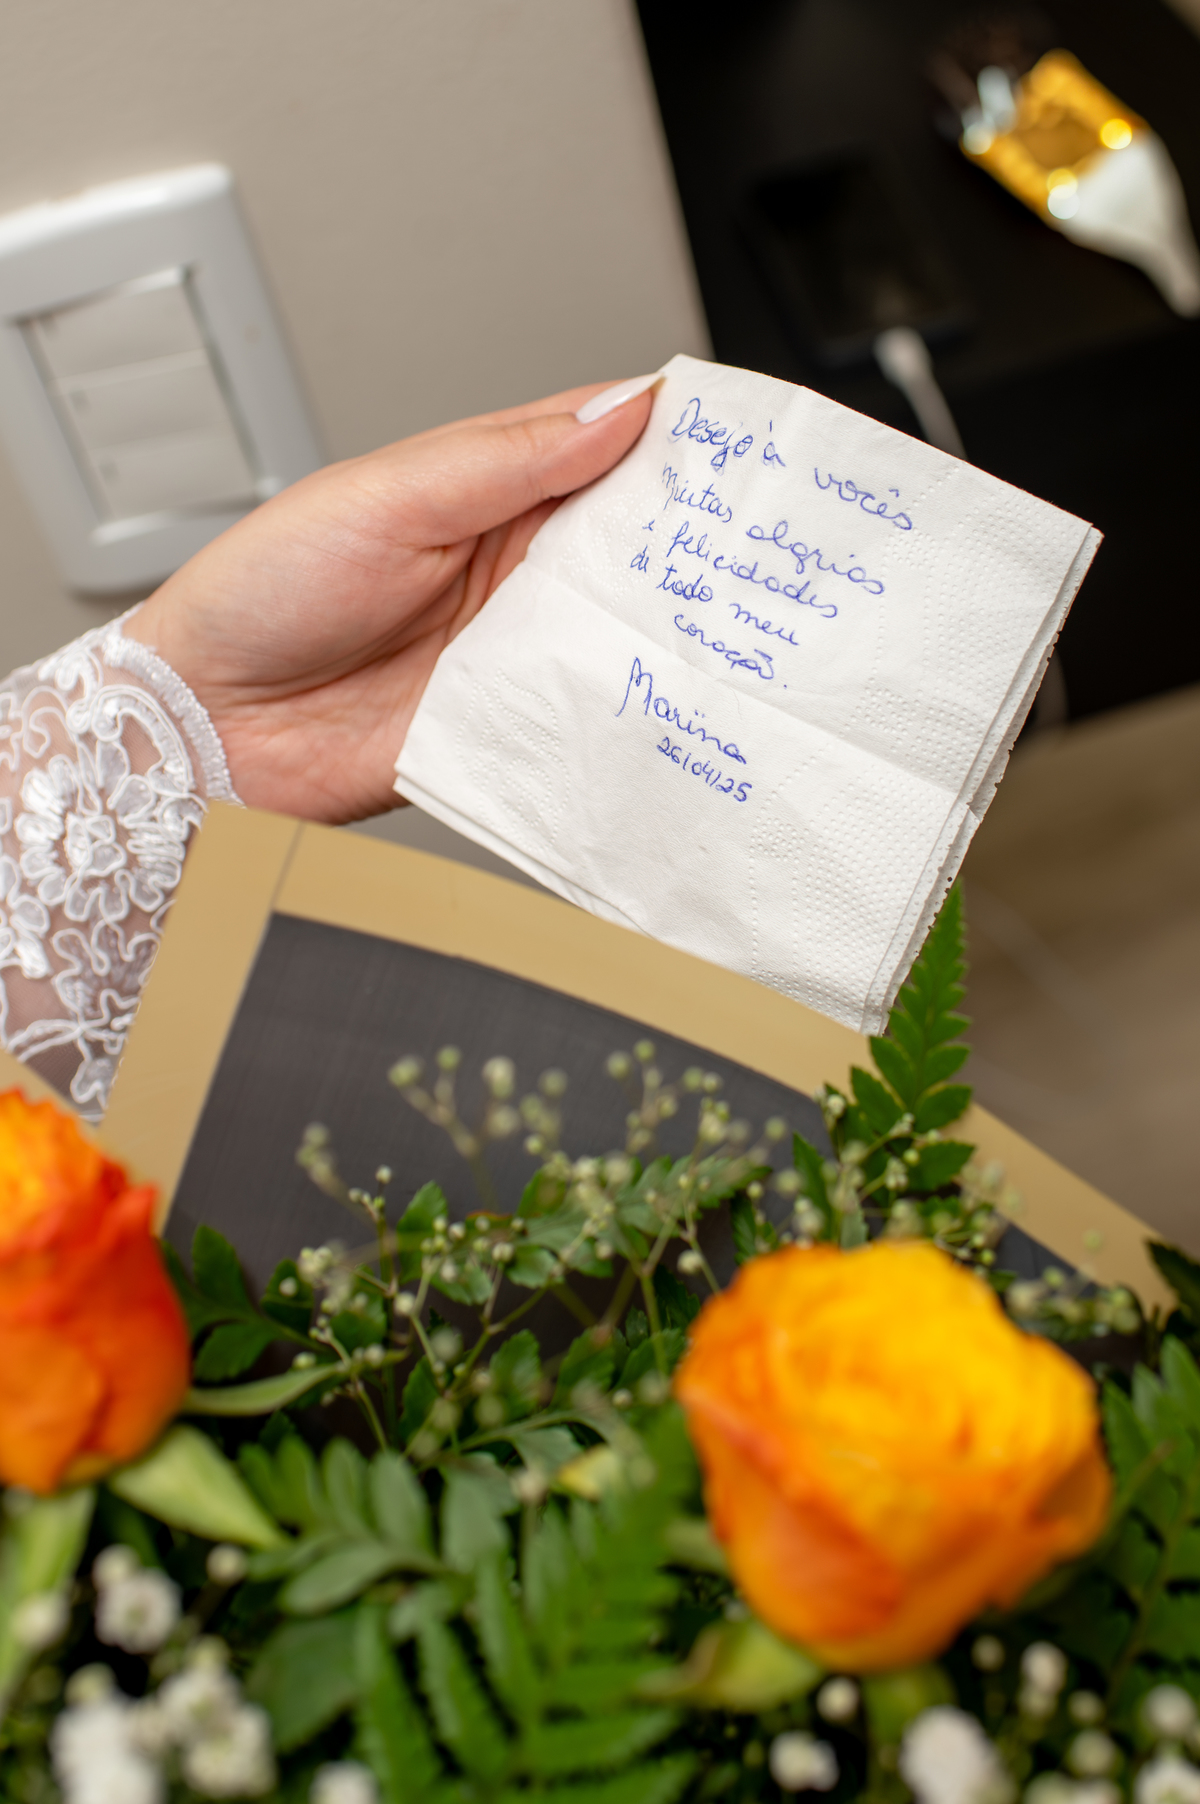 Desejo à vocês
muitas alegrias
e felicidades
de todo meu
coração.
Marina
26/04/25